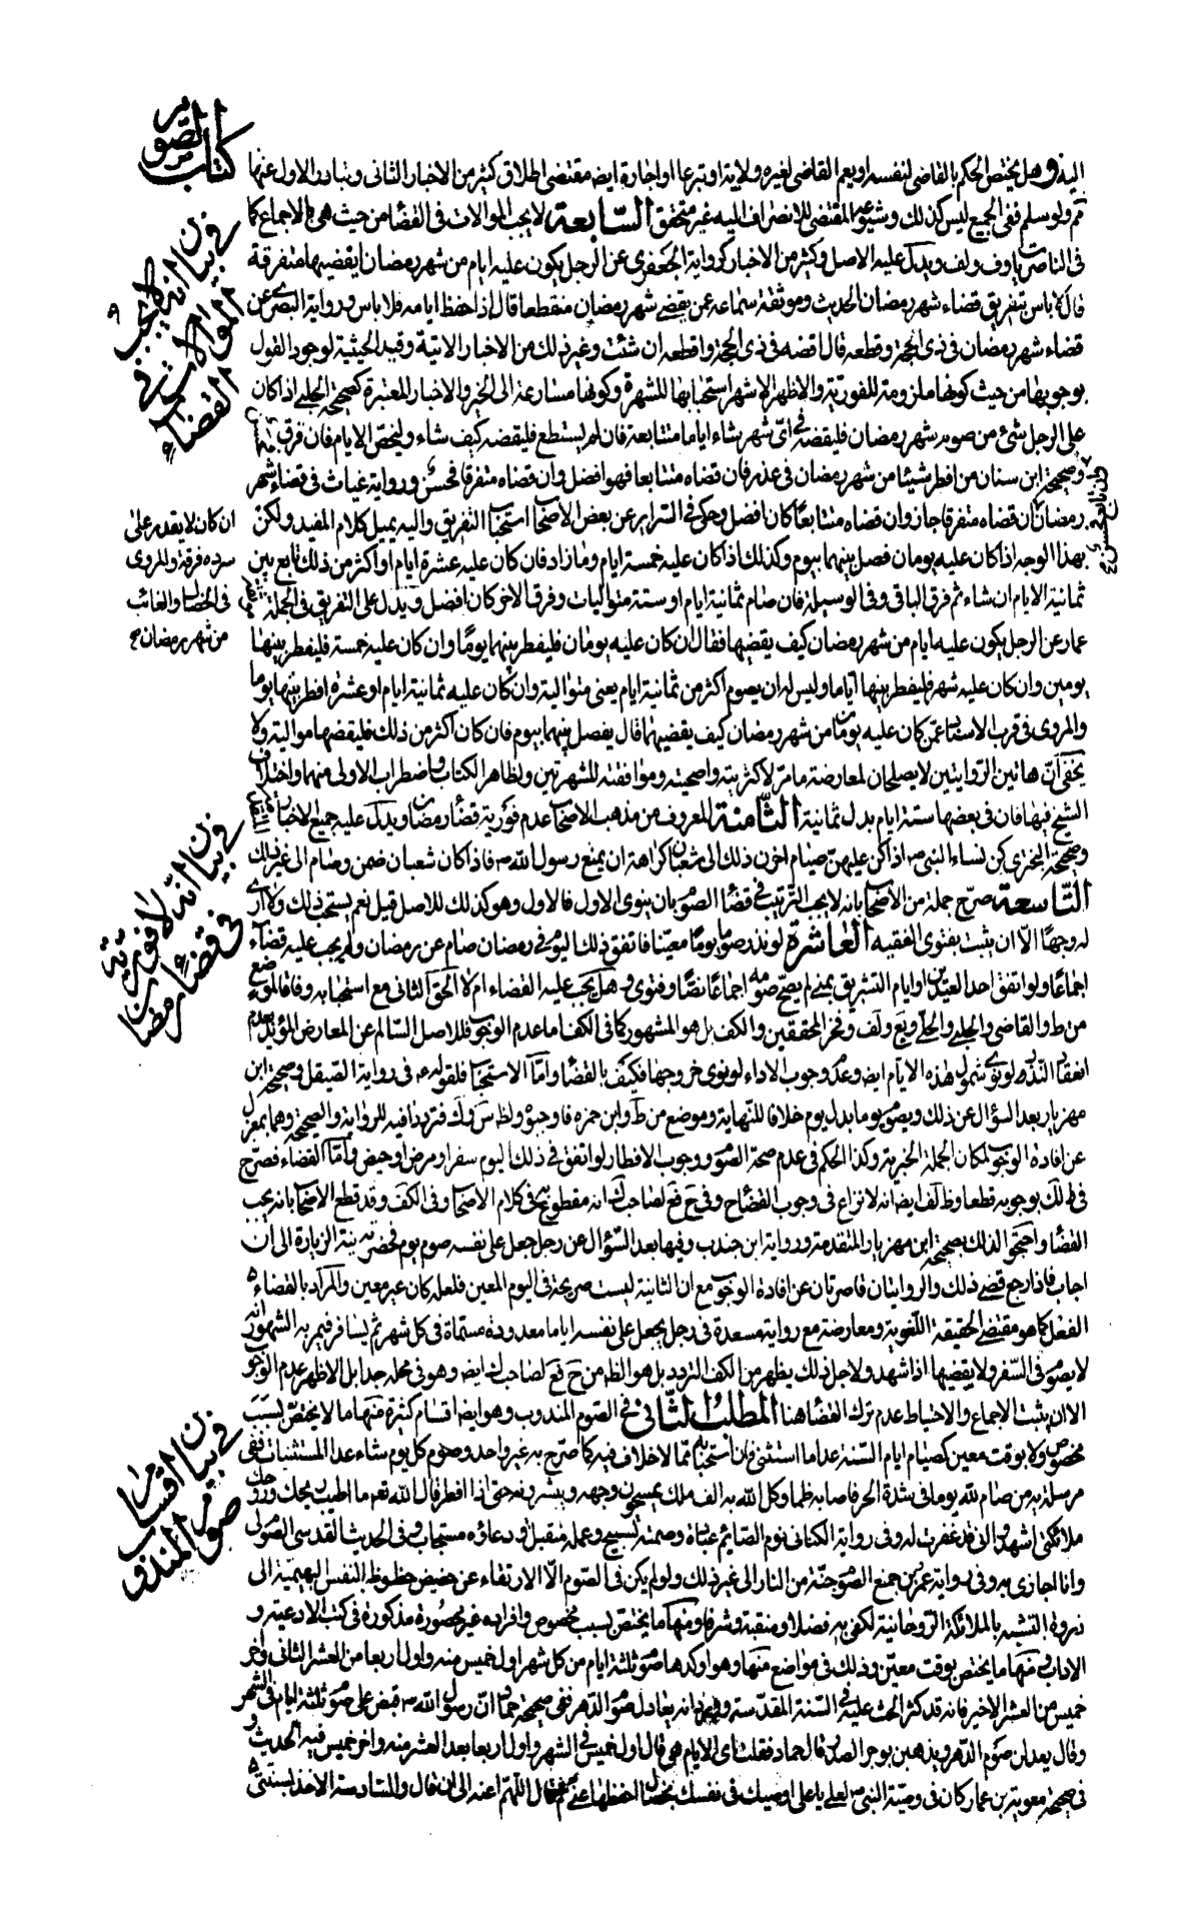 كتاب الصوم
اليه وهل يختص الحكم بالقاضي لنفسه او يعم القاضي لغيره ولاية او تبرعا او اجارة ايضا مقتضى اطلاق كثير من الاخبار الثاني وتبادر الاول عنها
ثم ولو سلم ففي الجميع ليس كذلك وشيوعه المقتضي للانصراف اليه غير متحقق السابعة لا يجب الموالات في القضاء من حيث هي هي بالاجماع كما
في الناصريات وف ولف ويدل عليه الاصل وكثير من الاخبار كرواية الجعفري عن الرجل يكون عليه ايام من شهر رمضان ايقضيها متفرقة
قال لا باس بتفريق قضاء شهر رمضان الحديث وموثقة سماعة عمن يقضي شهر رمضان منقطعا قال اذا حفظ ايامه فلا باس ورواية البصري عن
قضاء شهر رمضان في ذي الحجة وقطعه قال اقضه في ذي الحجة واقطعه ان شئت وغير ذلك من الاخبار الاتية وقيد الحيثية لوجود القول
بوجوبها من حيث كونها ملزومة للفورية والاظهر الاشهر استحبابها للشهرة وكونها مسارعة الى الخير والاخبار المعتبرة كصحيحة الحلبي اذا كان
على الرجل شئ من صوم شهر رمضان فليقضه في اي شهر شاء اياما متتابعة فان لم يستطع فليقضه كيف شاء وليحص الايام فان فرق
وصحيحة ابن سنان من افطر شيئا من شهر رمضان في عذر فان قضاه متتابعا فهو افضل وان قضاه متفرقا فحسن ورواية غياث في قضاء شهر
رمضان ان قضاه متفرقا جاز وان قضاه متتابعا كان افضل وحكى في السرائر عن بعض الاصحاب استحباب التفريق واليه يميل كلام المفيد ولكن
بهذا الوجه اذا كان عليه يومان فصل بينهما بيوم وكذلك اذا كان عليه خمسة ايام وما زاد فان كان عليه عشرة ايام او اكثر من ذلك تابع بين
ثمانية الايام ان شاء ثم فرق الباقي وفي الوسيلة فان صام ثمانية ايام او ستة متواليات وفرق الاخر كان افضل ويدل على التفريق في الجملة
عمار عن الرجل يكون عليه ايام من شهر رمضان كيف يقضيها فقال ان كان عليه يومان فليفطر بينهما يوما وان كان عليه خمسة فليفطر بينها
يومين وان كان عليه شهر فليفطر بينها اياما وليس له ان يصوم اكثر من ثمانية ايام يعني متوالية وان كان عليه ثمانية ايام او عشرة افطر بينها يوما
والمروي في قرب الاسناد عمن كان عليه يومان من شهر رمضان كيف يقضيهما قال يفصل بينهما بيوم فان كان اكثر من ذلك فليقضها متوالية ولا
يخفى ان هاتين الروايتين لا يصلحان لمعارضة ما مر لاكثريته واصحيته وموافقته للشهرتين ولظاهر الكتاب واضطراب الاولى منهما واختلاف
الشيخ فيها فان في بعضها ستة ايام بدل ثمانية الثامنة المعروف من مذهب الاصحاب عدم فورية قضاء رمضان ويدل عليه جميع الاخبار
وصحيحة البختري كن نساء النبي ص اذا كن عليهن صيام اخرن ذلك الى شعبان كراهة ان يمنع رسول الله ص فاذا كان شعبان صمن وصام الى غير ذلك
التاسعة صرح جملة من الاصحاب بانه لا يجب الترتيب في قضاء الصوم بان ينوي الاول فالاول وهو كذلك للاصل قيل نعم يستحب ذلك ولا ارى
له وجها الا ان يثبت بفتوى الفقيه العاشرة لو نذر صوم يوما معينا فاتفق ذلك اليوم في رمضان صام عن رمضان ولم يجب عليه قضاء
اجماعا ولو اتفق احد العيدين او ايام التشريق بمنى لم يصح صومه اجماعا نصا وفتوى وهل يجب عليه القضاء ام لا الحق الثاني مع استحبابه وفاقا لموضع
من ط والقاضي والحلبي والحلي ويع ولف وفخر المحققين والكف بل هو المشهور كما في الكف اما عدم الوجوب فللاصل السالم عن المعارض المؤيد بعدم
انعقاد النذر لو نوى شمول هذه الايام ايضا وعدم وجوب الاداء لو نوى خروجها فكيف بالقضاء واما الاستحباب فلقوله ع في رواية الصيقل وصحيحة ابن
مهزيار بعد السؤال عن ذلك ويصوم يوما بدل يوم خلافا للنهاية وموضع من ط وابن حمزة فاوجبوه ولظ س وك فترددا فيه للرواية والصحيحة وهما بمعزل
عن افادة الوجوب لمكان الجملة الخبرية وكذا الحكم في عدم صحة الصوم ووجوب الافطار لو اتفق في ذلك اليوم سفر او مرض او حيض واما القضاء فصرح
في ك بوجوبه قطعا وظ لف ايضا انه لا نزاع في وجوب القضاء وفي ح فع لصاحب ك انه مقطوع به في كلام الاصحاب وفي الكف وقد قطع الاصحاب بانه يجب
القضاء واحتجوا لذلك بصحيحة ابن مهزيار المتقدمة ورواية ابن جندب وفيها بعد السؤال عن رجل جعل على نفسه صوم يوم فحضرته نية الزيارة الى ان
اجاب فاذا رجع قضى ذلك والروايتان قاصرتان عن افادة الوجوب مع ان الثانية ليست صريحة في اليوم المعين فلعله كان غير معين والمراد بالقضاء
الفعل كما هو مقتضى الحقيقة اللغوية ومعارضة مع رواية مسعدة في رجل يجعل على نفسه اياما معدودة مسماة في كل شهر ثم يسافر فيمر به الشهور انه
لا يصوم في السفر ولا يقضيها اذا شهد ولاجل ذلك يظهر من الكف التردد بل هو الظ من ح فع لصاحب ك ايضا وهو في محله جدا بل الاظهر عدم الوجوب
الا ان يثبت الاجماع والاحتياط عدم ترك القضاء هنا المطلب الثاني في الصوم المندوب وهو ايضا اقسام كثيرة منها ما لا يختص بسبب
مخصوص ولا بوقت معين كصيام ايام السنة عدا ما استثني فان استحبابه مما لا خلاف فيه كما صرح به غير واحد وصوم كل يوم شاء عدا المستثنيات ففي
مرسلة من صام لله يوما في شدة الحر فاصابه ظما وكل الله به الف ملك يمسحون وجهه ويبشرونه حتى اذا افطر قال الله تع ما اطيب ريحك وروحك
ملائكتي اشهدوا اني قد غفرت له وفي رواية الكناني نوم الصائم عبادة وصمته تسبيح وعمله متقبل ودعاؤه مستجاب وفي الحديث القدسي الصوم لي
وانا اجازي به وفي رواية عمرو بن جميع الصوم جنة من النار الى غير ذلك ولو لم يكن في الصوم الا الارتقاء عن حضيض حظوظ النفس البهيمية الى
ذروة التشبه بالملائكة الروحانية لكفى به فضلا ومنقبة وشرفا ومنها ما يختص بسبب مخصوص وافراده غير محصورة مذكورة في كتب الادعية و
الاداب ومنها ما يختص بوقت معين وذلك في مواضع منها وهو اوكدها صوم ثلثة ايام من كل شهر اول خميس منه واول اربعا من العشر الثاني واخر
خميس من العشر الاخير فانه قد كثر الحث عليه في السنة المقدسة وورد انه يعادل صوم الدهر ففي صحيحة حماد ان رسول الله ص قبض على صوم ثلثة ايام في الشهر
وقال يعدلن صوم الدهر ويذهبن بوحر الصدر قال حماد فقلت اي الايام هي قال اول خميس في الشهر واول اربعا بعد العشر منه واخر خميس فيه الحديث و
في صحيحة معوية بن عمار كان في وصية النبي ص لعلي يا علي اوصيك في نفسك بخصال احفظها عني ثم قال اللهم اعنه الى ان قال والسادسة الاخذ بسنتي
في بيان انه لا يجب الموالات في القضاء
ان كان لا يقدر على
سرده فرقه والمروي
في الخصال والغائب
من شهر رمضان
في بيان انه لا فورية في قضاء رمضان
في بيان اقسام صوم المندوب